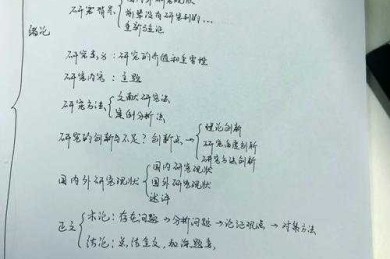 国内外研究现状
研究背景 前辈没有研究到的…
重新论证
绪论
研究意义：研究的价值和重要性
研究内容：主题
研究方法 文献研究法
案例分析法
研究的创新与不足？创新点→ 理论创新
研究角度创新
研究方法创新
国内研究现状
国内外研究现状 国外研究现状
述评
正文 本论：存在问题→分析问题→论证观点→对策方法
结论：总结全文，加深题意